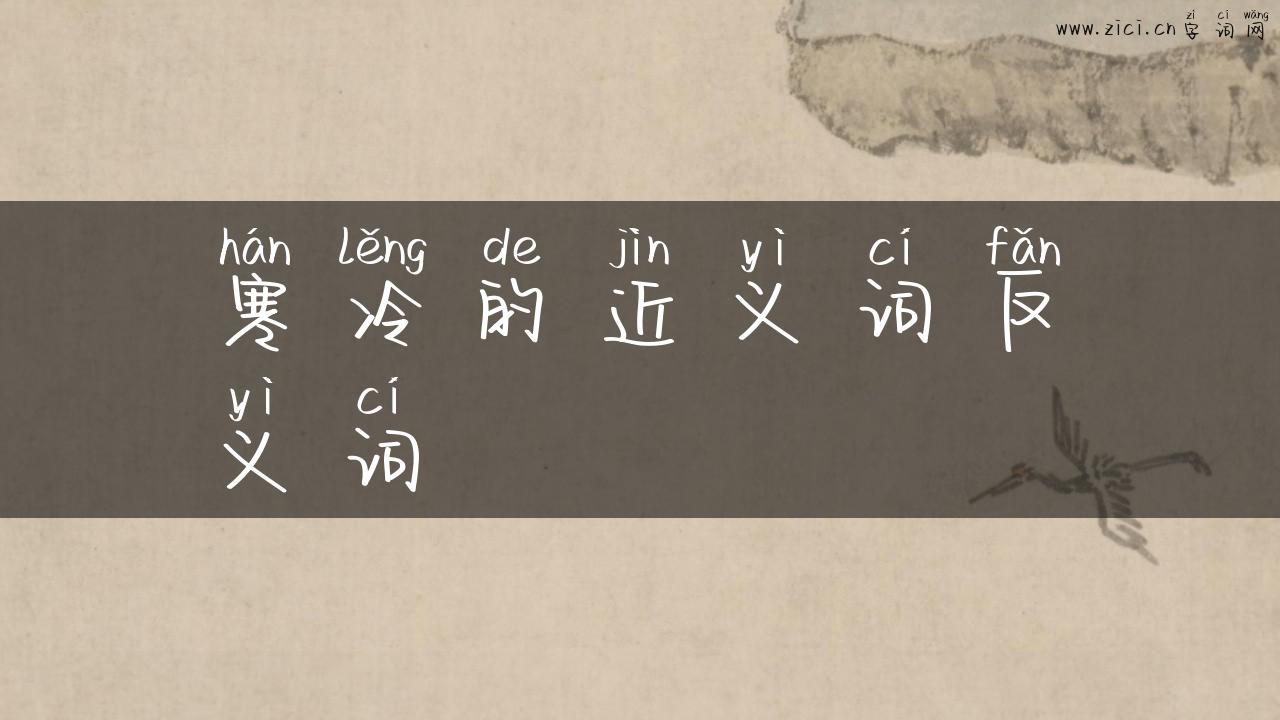 zì cí wǎng
www.zici.cn 字 词 网
hán lěng de jìn yì cí fǎn
寒 冷 的 近 义 词 反
yì cí
义 词